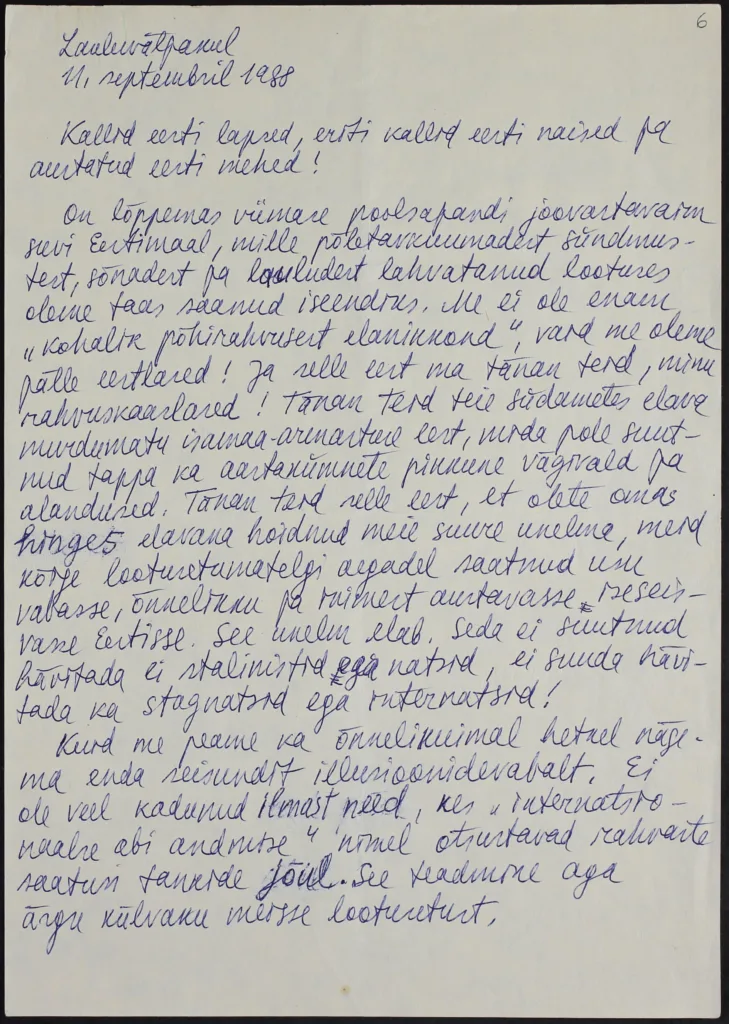 6
Lauluväljakul
11. septembril 1988
Kallid eesti lapsed, eriti kallid eesti naised ja
austatud eesti mehed!
On lõppemas viimase poolsajandi joovastavaim
suvi Eestimaal, mille põletavkuumadest sündmus-
test, sõnadest ja lauludest lahvatanud lootuses
oleme taas saanud iseendiks. Me ei ole enam
„kohalik põhirahvusest elanikkond“, vaid me oleme
jälle eestlased! Ja selle eest ma tänan teid, minu
rahvuskaaslased! Tänan teid teie südametes elava
murdumatu isamaa-armastuse eest, mida pole suut-
nud tappa ka aastakümnete pikkune vägivald ja
alandused. Tänan teid selle eest, et olete omas
hinges elavana hoidnud meie suure unelma, meid
kõige lootusetumatelgi aegadel saatnud usu
vabasse, õnnelikku ja inimest austavasse iseseis-
vasse Eestisse. See unelm elab. Seda ei suutnud
hävitada ei stalinistid ega natsid, ei suuda hävi-
tada ka stagnatsid ega internatsid!
Kuid me peame ka õnnelikuimal hetkel näge-
ma enda seisundit illusioonidevabalt. Ei
ole veel kadunud ilmast need, kes „internatsio-
naalse abi andmise“ nimel otsustavad rahvaste
saatusi tankide jõul. See teadmine aga
ärgu külvaku meisse lootusetust,